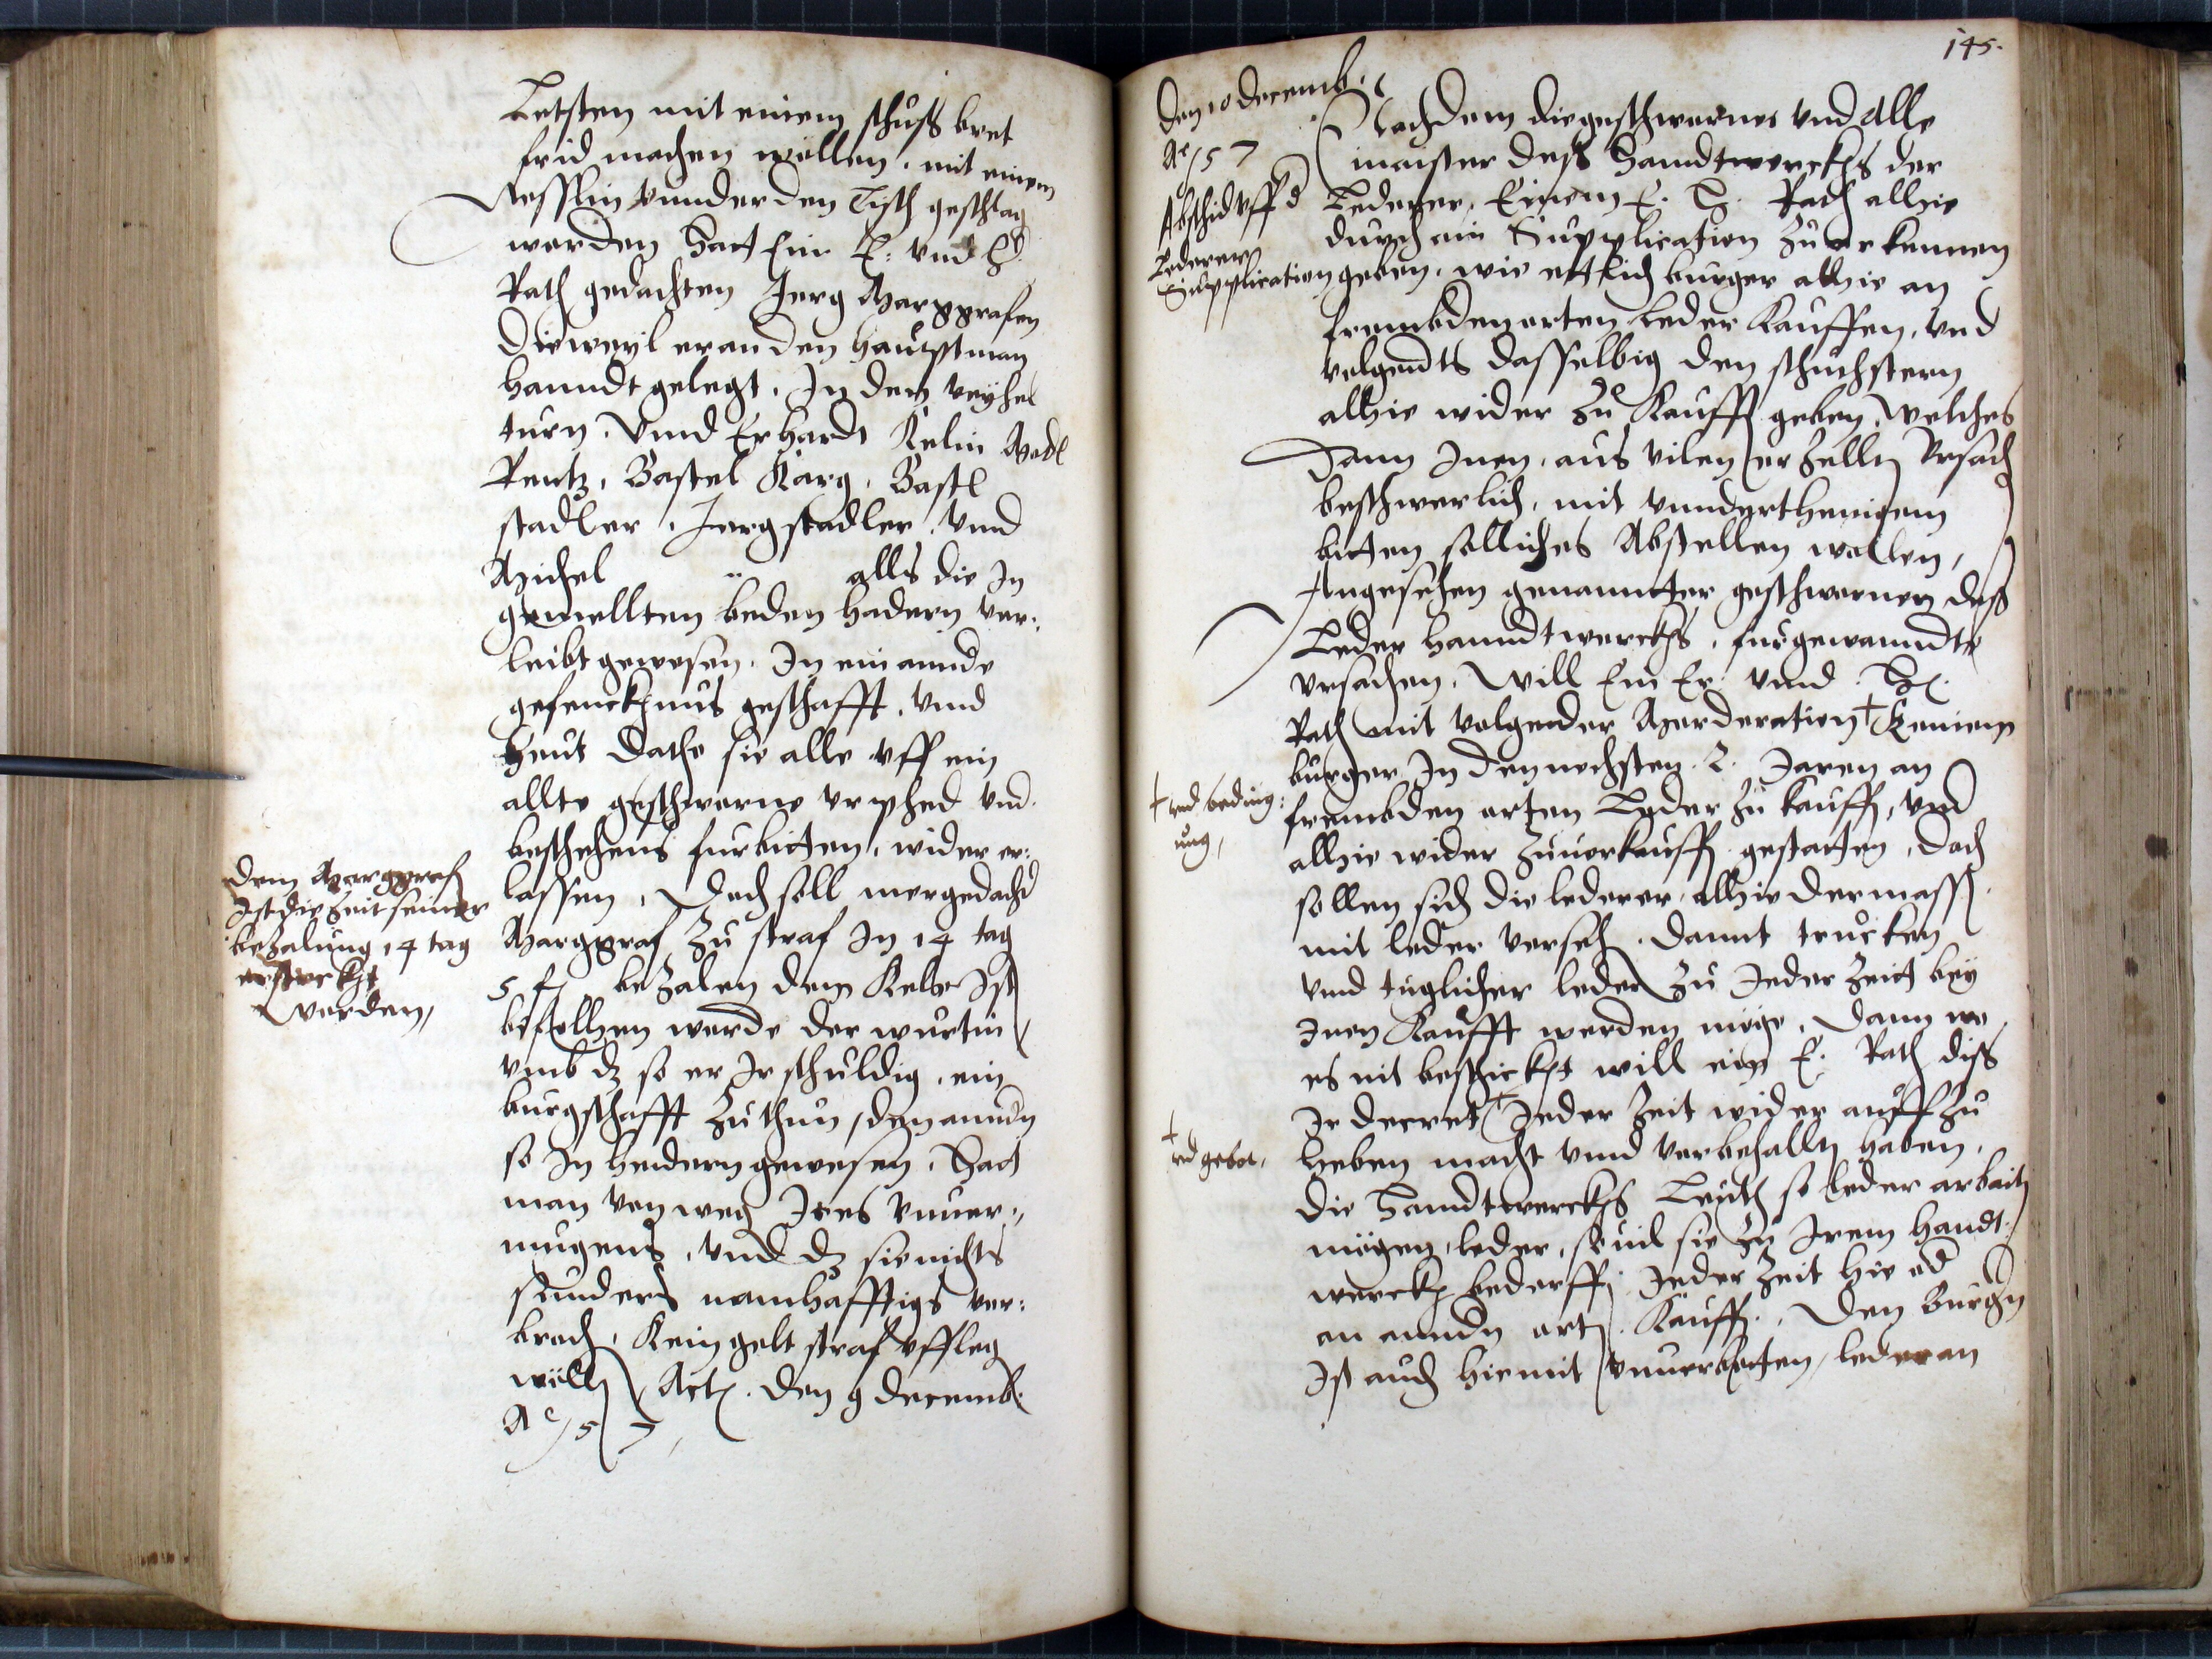 Letsten mit einem schuss bret
frid machen wöllen, mit einem
Messlin vunder den Tisch geschlag
worden Hatt Ein E: vnd H
Rath gedachten Jerg Marggrafen
Dieweyl er an den hauptman
hanndt gelegt, In den veyhel
turn. Vnnd Erhardt Kelin
Rentz, Bastel Karg, Bastl
stadler, Jerg stadler, vnnd
Michel alls die In
gemellten beden hadern ver:
leibt gewesen, In ein annde
gefenckhnus geschafft, vnnd
heut Dato sie alle vff ein
allte geschworne vrphed vnd
beschehens furbitten, wider er:
lassen, Doch soll mergedacht
Marggraf zu straf In 14 tag
5 fl bezalen dem Kelin Ist
befolhen worden der wurtin
vmb dz so er Ir schuldig, ein
burgschafft zu thun, den anndn
so In hendern gewesen, Hatt
man von weg Ires vnuer:
mugens, vnd dz sie nichts
sonnders namhafftigs ver:
broch, Kein gelt straf vffleg
wölln Act. den 9 decemb:
Aº / 57,
Dem Marggraf
Ist die Zeit seiner
bezalung 14 tag
erstreckht
worden,
145.
Den 10 decemb:
Aº / 57
Abschid vff d
Lederer
Supplication
Nachdem die geschwornen vnd Alle
maister dess Handtwerckhs der
Lederer, Einem E. H. Rath alhie
durch ein Supplication zu erkennen
geben, wie ettlich burger alhie an
frembden orten Leder Kauffen, vnd
volgendts dasselbig den schuchstern
alhie wider zu Kauffen geben, welches
Dann Inen, aus vilen erzellten Vrsach
beschwerlich, mit vnnderthenigem
bitten solliches Abstellen wollen,
Angesehen genanntter geschwornen dess
Leder hanndtwerckhs, furgewanndte
vrsachen, Will Ein Er. vnnd
Rath mit volgender Moderation + Keinem
burger In den nechsten 2. Jaren an
frembden orten Leder zu kauffen, vnd
alhie wider zuuerkauffen gestatten, Doch
sollen sich die lederer alhie dermassen
mit leder verseh, damit trucken
vnnd tuglicher leder zu Jeder Zeit bey
Inen Kaufft werden möge, Dann wo
es nit beschickht will ein E: Rath diss
Ir decret + Jeder Zeit wider auff zu
heben macht vnnd vorbehalltn haben,
Die Hanndtwerckhs Leuth so leder arbaitn
mögen, leder, souil sie zu Irem handt:
werckh bederffen Jeder Zeit hie od
an anndn ortn Kauffen, Den Burgern
Ist auch hiemit vnuerbotten, leder an
+ vnd beding:
ung,
+
vnd gebot,